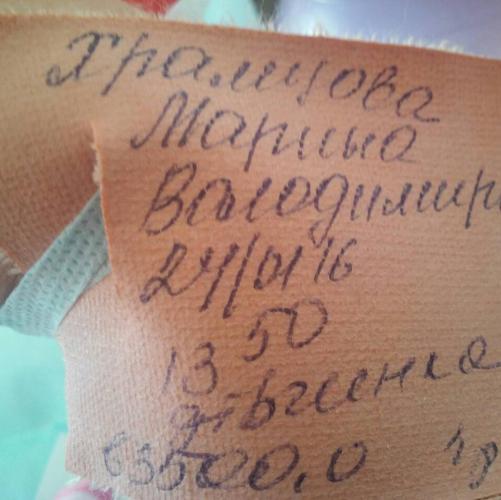 Храмцова
Марина
Володимир
24/01 16
13 50
дівчинка
3500,0